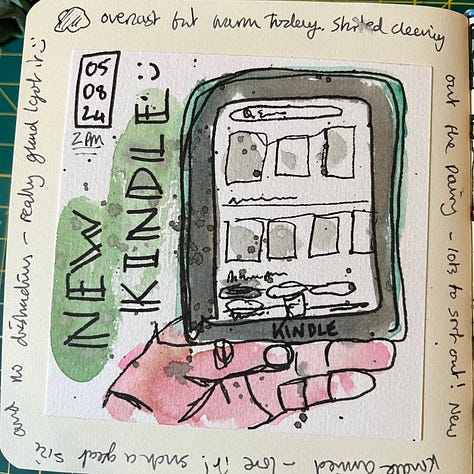 overcast but warm today. Started clearing
out the Dairy - lots to sort out! New
Kindle arrived - love it! such a great size
and no distractions - really glad I got it :)
05
08
24
2PM
NEW
KINDLE :)
KINDLE